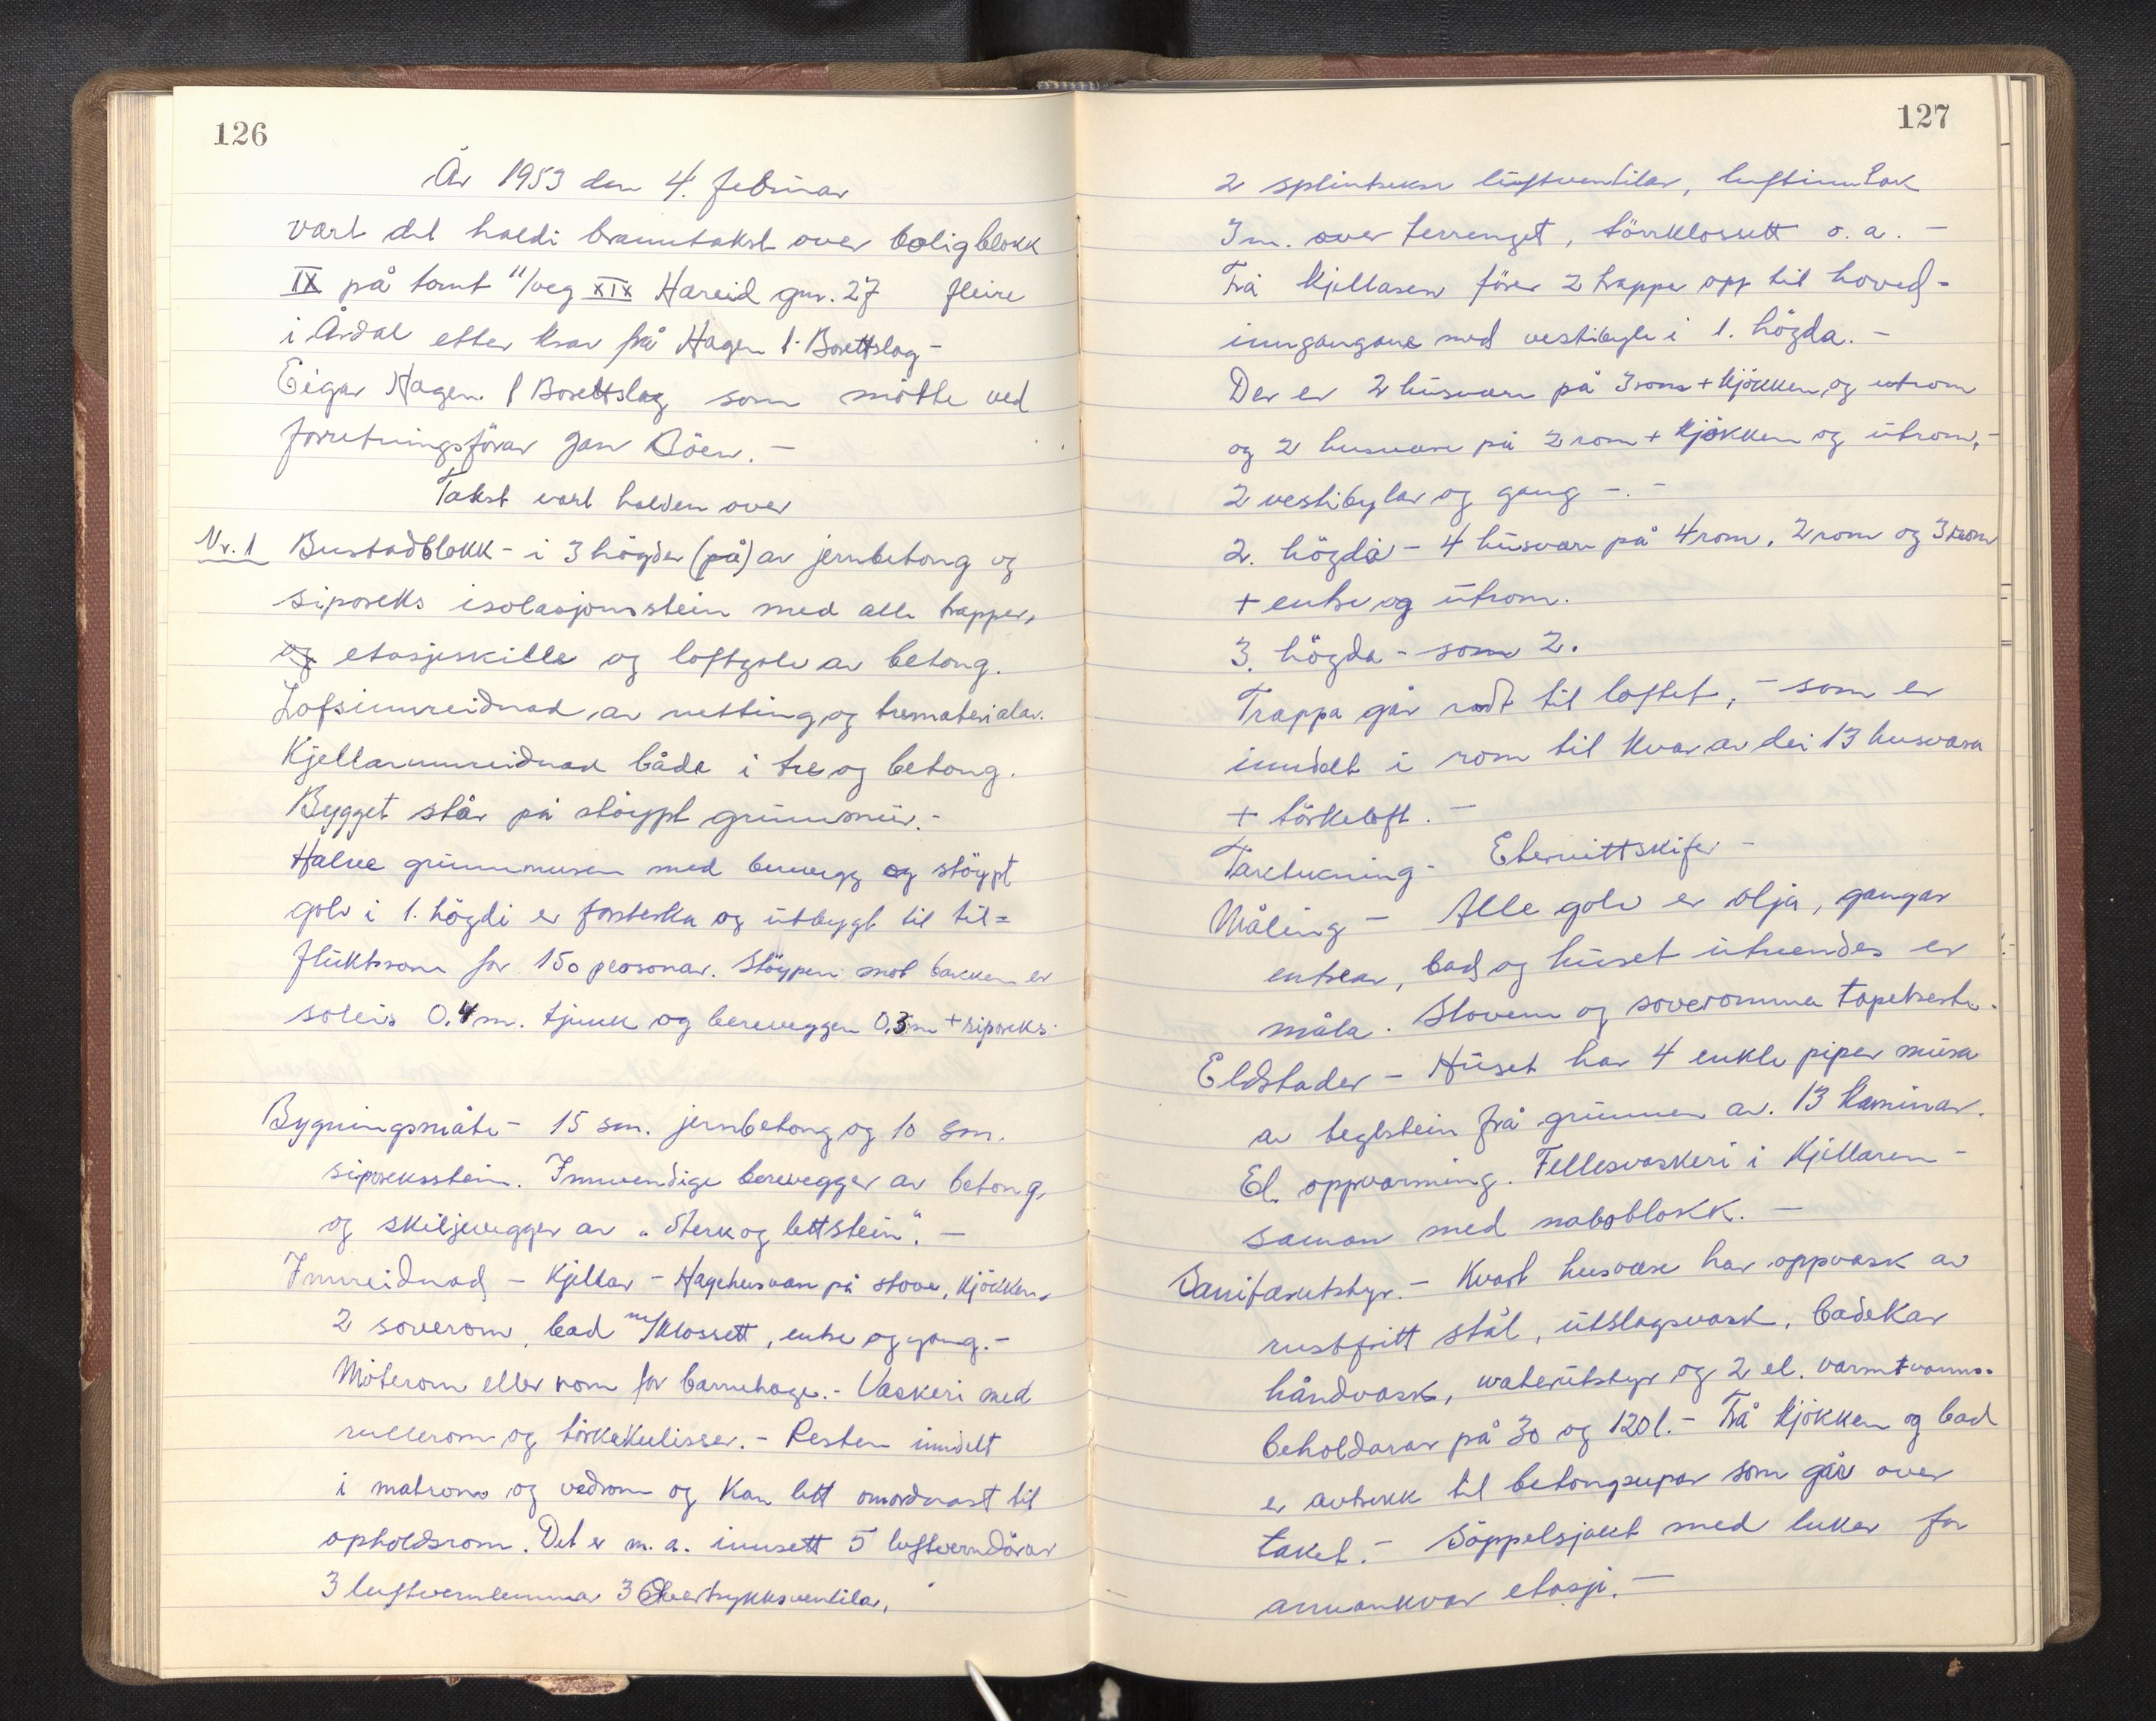 126
År 1953 den 4. februar
vart det haldi branntakst over boligblokk
IX på tomt 11/veg XIX Hareid gnr. 27 fleire
i Årdal etter krav frå Hagen 1. Borettslag -
Eigar Hagen 1 Borettslag som møtte ved
forretningsförar Jan Böen. -
Takst vart halden over
Nr. 1 Bustadblokk - i 3 högder (på) av jernbetong og
siporeks isolasjonsstein med alle trapper,
og etasjeskille og loftgolv av betong.
Loftsinnreidnad av netting og trematerialar.
Kjellarinnreidnad både i tre og betong.
Bygget står på støypt grunnmur. -
Halve grunnmuren med berevegg og støypt
golv i 1. högdi er forsterka og utbygt til til=
fluktsrom for 150 personar. Støypen mot bakken er
soleis 0.4 m. tjukk og bereveggen 0.3 m + siporeks.
Bygningsmåte - 15 sm. jernbetong og 10 sm.
siporeksstein. Innvendige berevegger av betong,
og skiljevegger av "Sterk og lettstein". -
Innreidnad - Kjellar - Hagehusvære på stove, kjökken,
2 soverom, bad m/klossett, entre og gang. -
Møterom eller rom for barnehage. - Vaskeri med
rullerom og törkekulisser. - Resten inndelt
i matrom og vedrom og kan lett omordnast til
opholdsrom. Det er m. a. innsett 5 luftverndörar
3 luftvernlemmar 3 Overtrykksventilar,
127
2 splintsikre luftventilar, luftinntak
3 m. over terrenget, törrklossett o. a. -
Frå kjellaren förer 2 trapper opp til hoved-
inngangane med vestibyle i 1. högda. -
Der er 2 husvære på 3 rom + kjökken og utrom
og 2 husvære på 2 rom + kjökken og utrom, -
2 vestibylar og gang -. -
2. högda - 4 husvære på 4 rom, 2 rom og 3 rom
+ entre og utrom.
3. högda - som 2.
Trappa går rodt til loftet, - som er
inndelt i rom til kvar av dei 13 husværa
+ törkeloft. -
Taktekning - Eternittskifer -
Måling - Alle golv er olja, gangar
entrear, bad og huset utvendes er
måla. Stovene og soveromma tapetserte.
Eldstader - Huset har 4 enkle piper mura
av teglstein frå grunnen av. 13 kaminar.
El. oppvarming. Fellesvaskeri i Kjellaren -
saman med naboblokk. -
Sanitærutstyr. - Kvart husvære har oppvask av
rustfritt stål, utslagsvask, badekar
håndvask, waterutstyr og 2 el. varmtvanns-
beholdarar på 30 og 120 l. - Frå kjökken og bad
er avtrekk til betongpipar som går over
taket. - Söppelsjakt med luker for
annankvar etasje. -